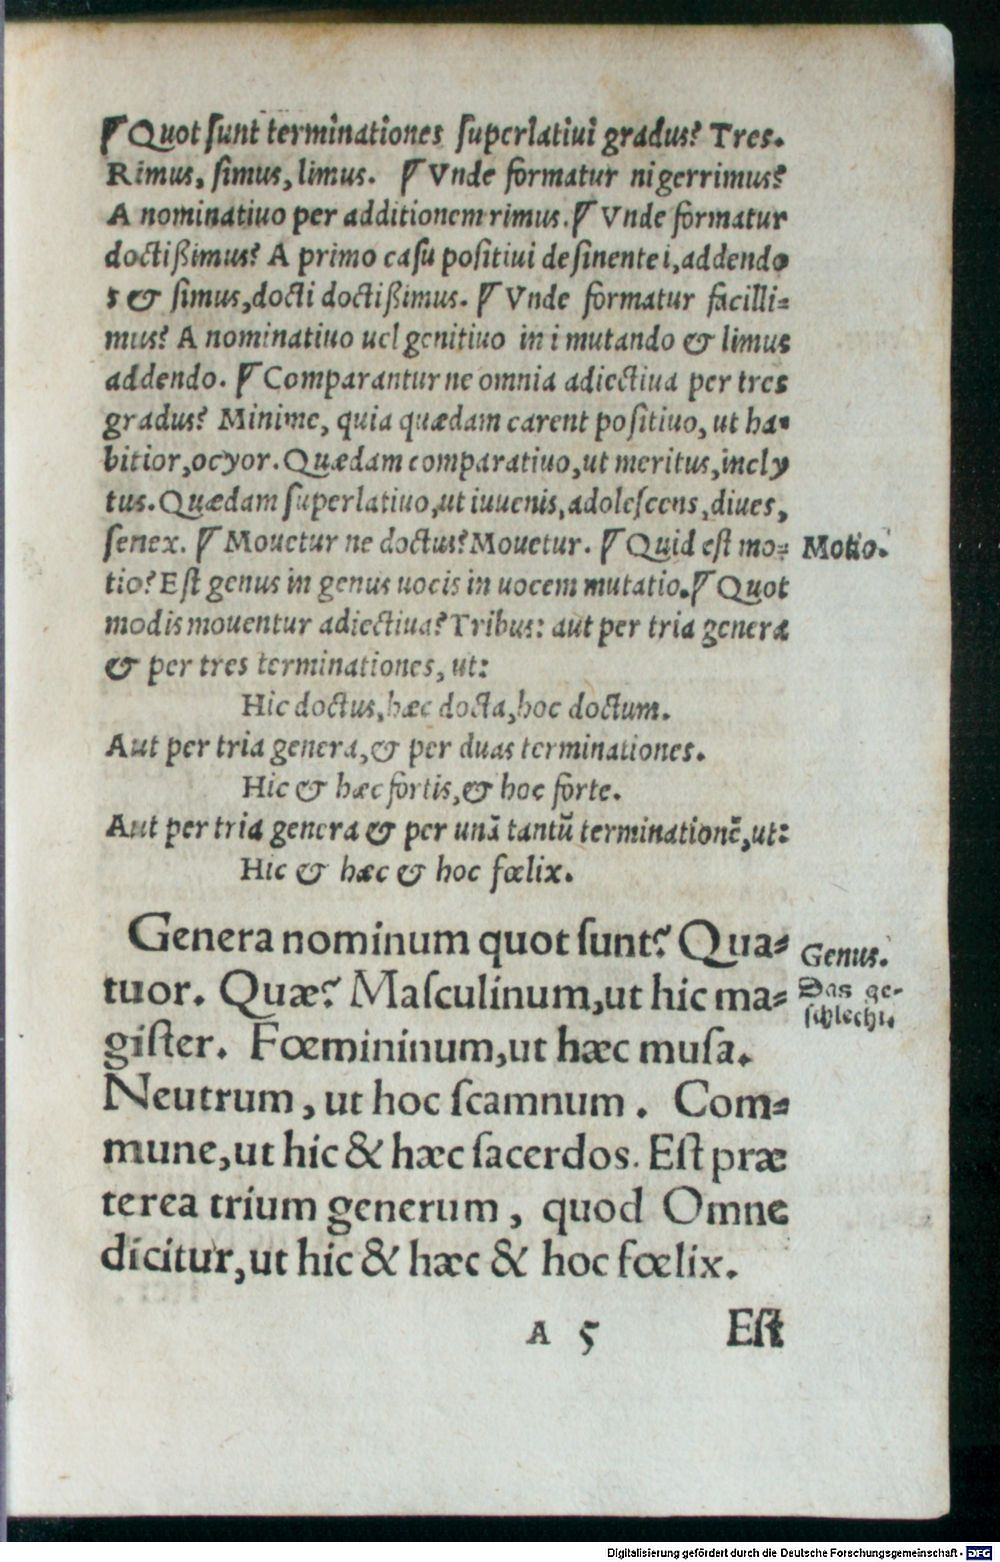 ¶ Quot ſunt terminationes ſuperlatiui gradus? Tres.
Rimus, ſimus, limus. ¶ Vnde formatur nigerrimus?
A nominatiuo per additionem rimus. ¶ Vnde formatur
doctißimus? A primo caſu poſitiui deſinente i, addendo
s & ſimus, docti doctißimus. ¶ Vnde formatur facilli⸗
mus? A nominatiuo uel genitiuo in i mutando & limus
addendo. ¶ Comparantur ne omnia adiectiua per tres
gradus? Minime, quia quædam carent poſitiuo, ut ha⸗
bitior, ocyor. Quædam comparatiuo, ut meritus, incly
tus. Quædam ſuperlatiuo, ut iuuenis, adoleſcens, diues,
ſenex. ¶ Mouetur ne doctus? Mouetur. ¶ Quid eſt mo⸗ Motio.
tio? Eſt genus in genus uocis in uocem mutatio. ¶ Quot
modis mouentur adiectiua? Tribus: aut per tria genera
& per tres terminationes, ut:
Hic doctus, hæc docta, hoc doctum.
Aut per tria genera, & per duas terminationes.
Hic & hæc fortis, & hoc forte.
Aut per tria genera & per unā tantū terminationē, ut:
Hic & hæc & hoc fœlix.
Genera nominum quot ſunt? Qua⸗ Genus.
tuor. Quæ? Maſculinum, ut hic ma⸗ Das ge-
giſter. Fœmininum, ut hæc muſa. ſchlecht.
Neutrum, ut hoc ſcamnum. Com⸗
mune, ut hic & hæc ſacerdos. Eſt præ
terea trium generum, quod Omne
dicitur, ut hic & hæc & hoc fœlix.
A 5 Eſt
Digitalisierung gefördert durch die Deutsche Forschungsgemeinschaft - DFG